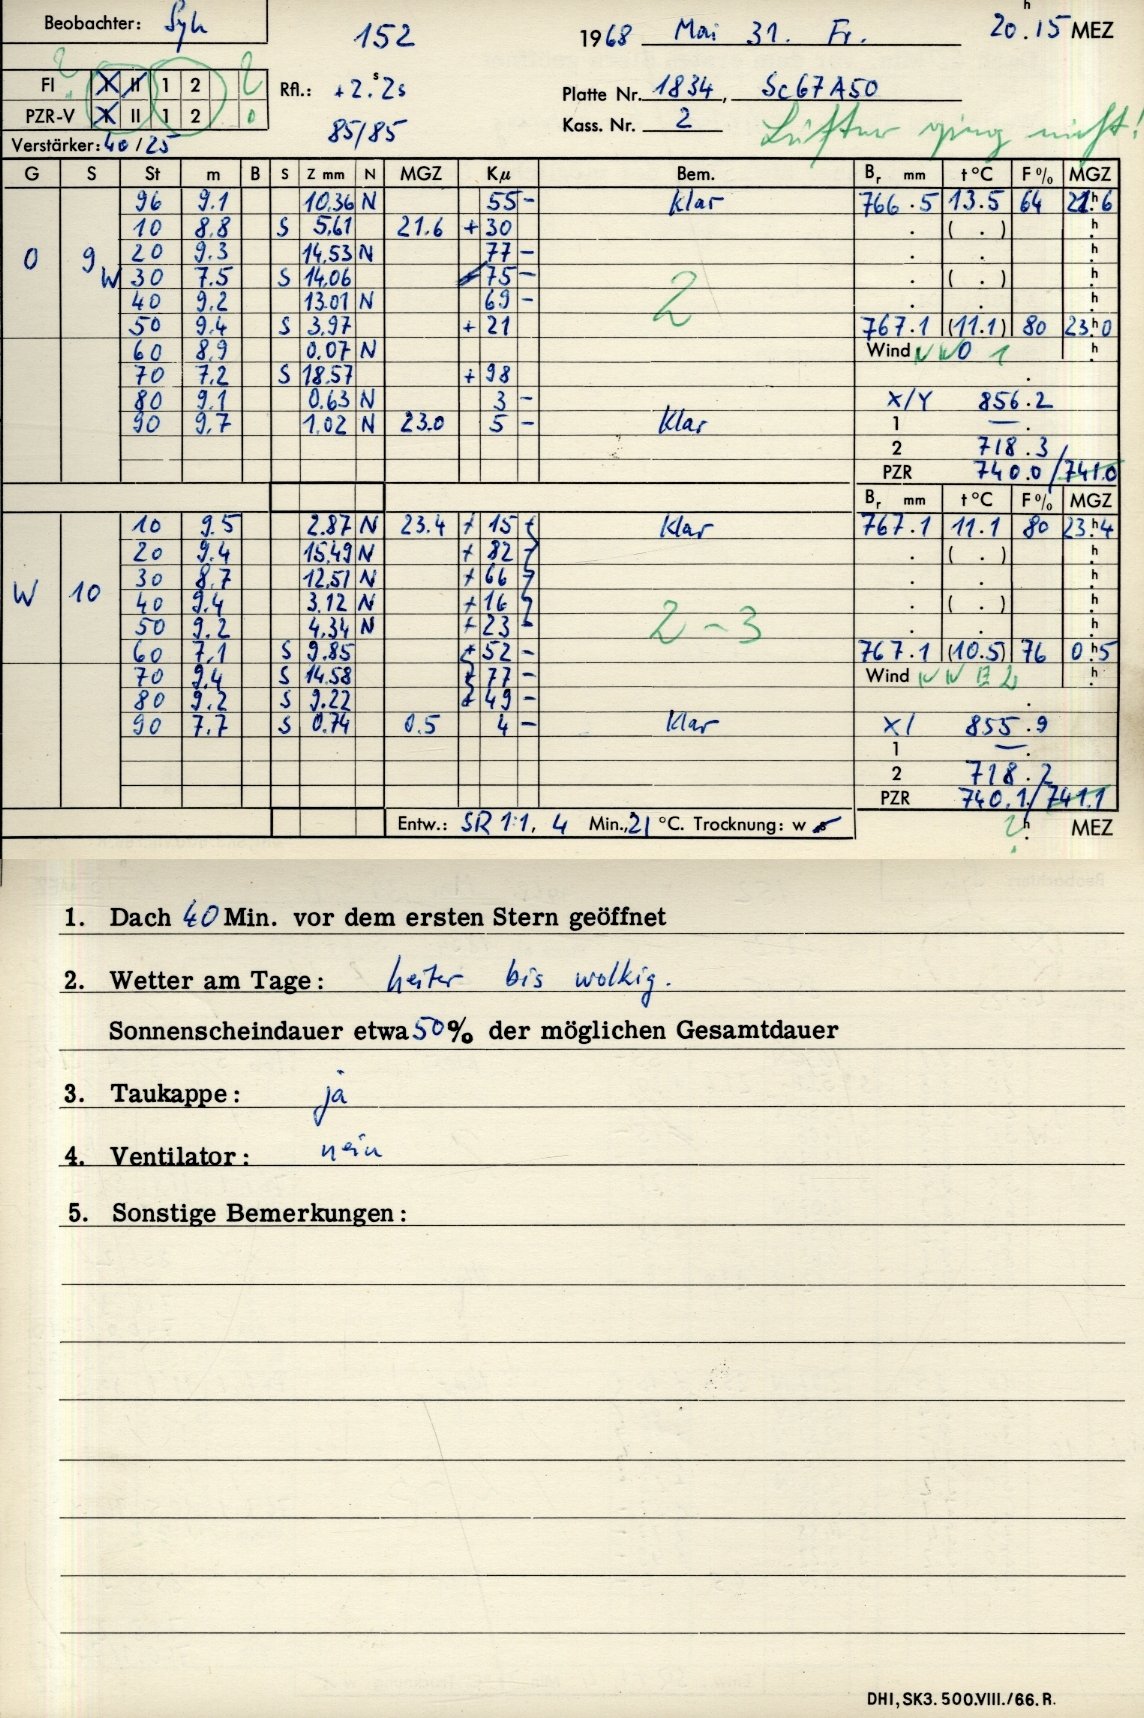 Beobachter: Syh 152 1968 Mai 31. Fr. 20h.15 MEZ
Fl I II 1 2 ?
PZR-V I II 1 2
Rfl.: +2.s2s
85/85
Platte Nr. 1834, Sc67A50
Kass. Nr. 2
Lüfter ging nicht!
Verstärker: 40/25
G S St m B S Z mm N MGZ Kμ Bem. Br mm t °C F % MGZ
96 9.1 10.36 N 55 - Klar 766.5 13.5 64 21h6
10 8.8 S 5.61 21.6 + 30 . ( . ) h
0 9 20 9.3 14.53 N 77 - . . h
W 30 7.5 S 14.06 75 - 2 . ( . ) h
40 9.2 13.01 N 69 - . . h
50 9.4 S 3.97 + 21 767.1 (11.1) 80 23h0
60 8.9 0.07 N Wind NWO 1 h
70 7.2 S 18.57 + 98 .
80 9.1 0.63 N 3 - X/Y 856.2
90 9.7 1.02 N 23.0 5 - Klar 1 — .
2 718.3
PZR 740.0/741.0
Br mm t °C F % MGZ
10 9.5 2.87 N 23.4 + 15 Klar 767.1 11.1 80 23h4
20 9.4 15.49 N + 82 . ( . ) h
30 8.7 12.51 N + 66 . . h
W 10 40 9.4 3.12 N + 16 . ( . ) h
50 9.2 4.34 N + 23 - 2-3 . . h
60 7.1 S 9.85 + 52 - 767.1 (10.5) 76 0h5
70 9.4 S 14.58 + 77 - Wind h
80 9.2 S 9.22 + 49 - .
90 7.7 S 0.74 0.5 4 - Klar X/ 855.9
1 — .
2 718.2
PZR 740.1/741.1
Entw.: SR 1:1, 4 Min., 21 °C. Trocknung: w s ?h. MEZ
1. Dach 40 Min. vor dem ersten Stern geöffnet
2. Wetter am Tage: heiter bis wolkig.
Sonnenscheindauer etwa 50% der möglichen Gesamtdauer
3. Taukappe: ja
4. Ventilator: nein
5. Sonstige Bemerkungen:
DHI, SK3. 500.VIII./66. R.